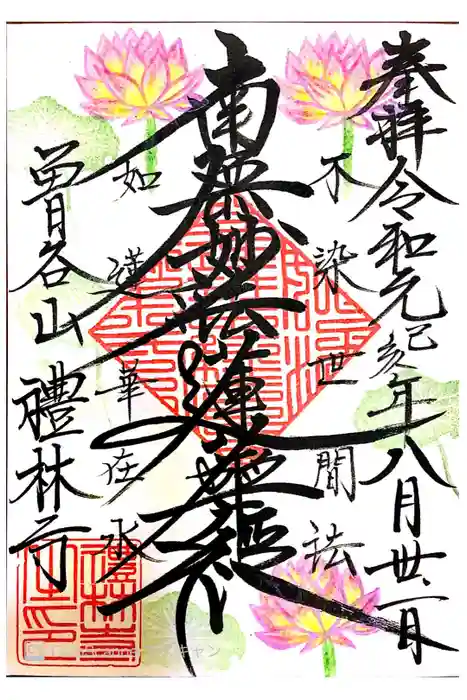 奉拝 令和元己亥年八月丗一日
不染世間法
南無妙法蓮華經
如蓮華在水
曽谷山 禮林寺